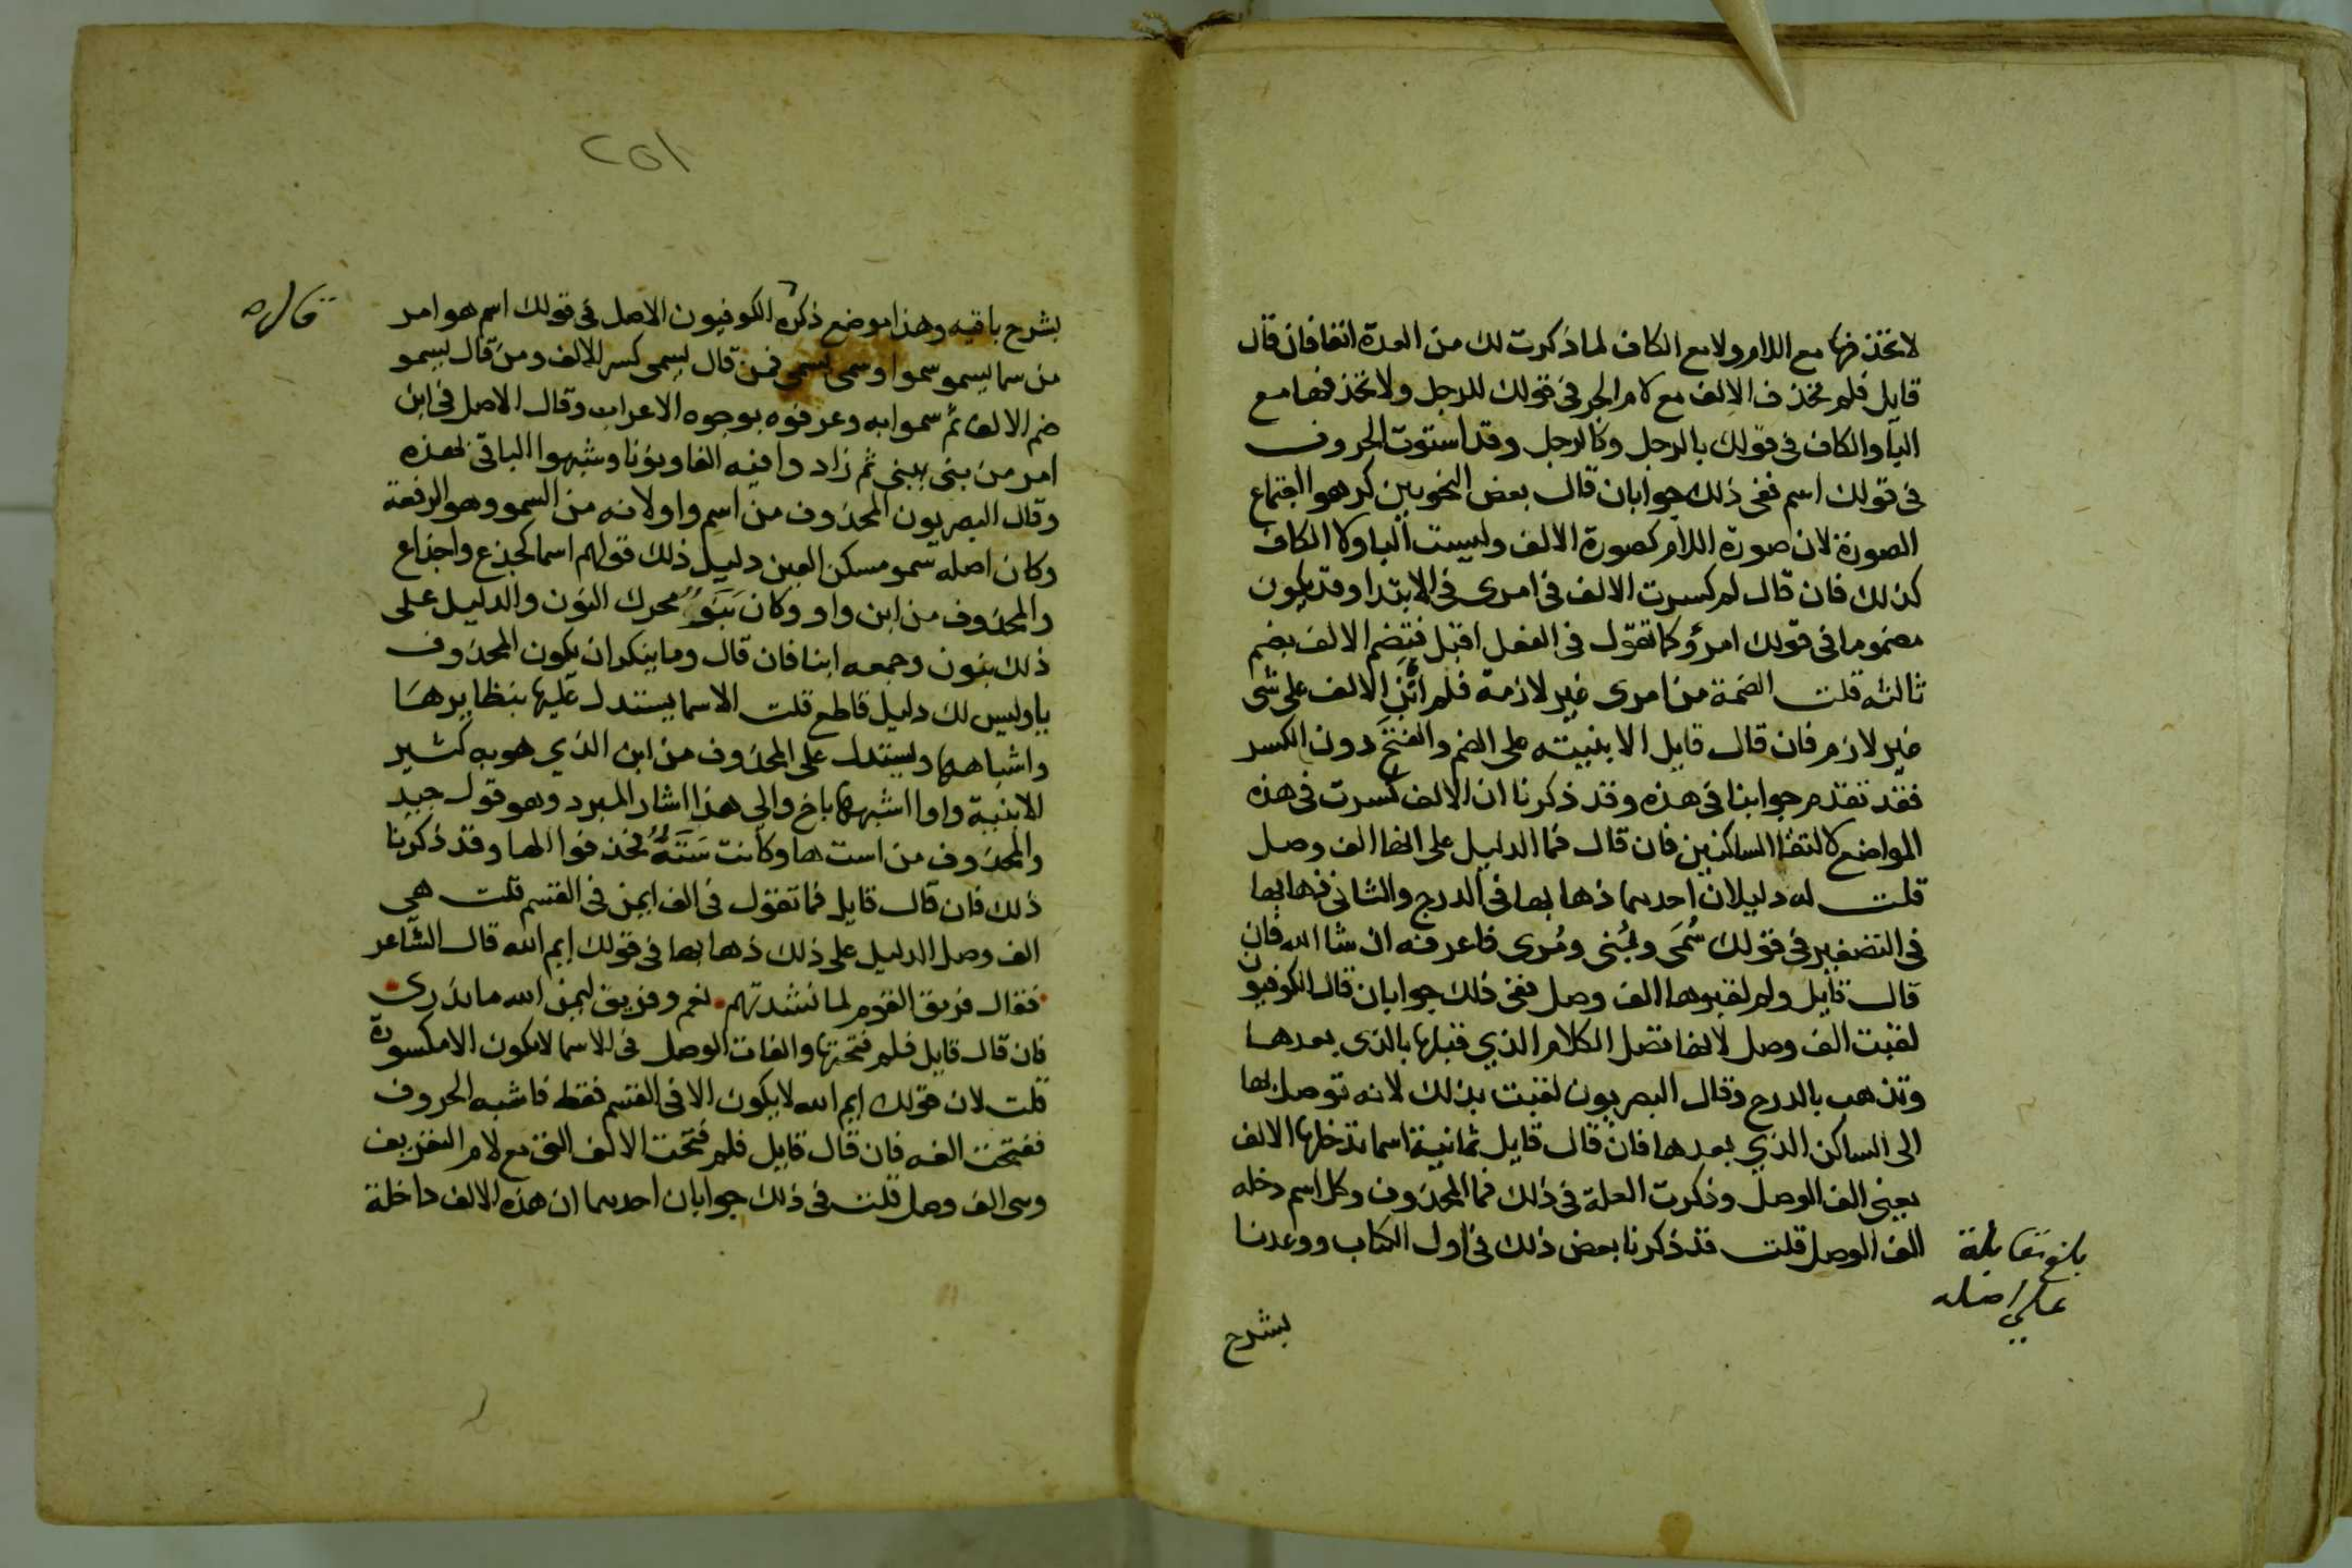 لا تحذفها مع اللام ولا مع الكاف لما ذكرت لك من العدة انفا فان قال
قايل فلم تحذف الالف مع لام الجر فى قولك للرجل ولا تحذفها مع
البا والكاف فى قولك بالرجل وكالرجل وقد استوت الحروف
فى قولك اسم ففى ذلك جوابان قال بعض النحويين كرهوا اجتماع
الصورة لان صورة اللام كصورة الالف وليست البا ولا الكاف
كذلك فان قال لم كسرت الالف فى امرى فى الابتدا وقد يكون
مضموما فى قولك امرؤ وكما تقول فى الفعل اقبل فتضم الالف بضم
ثالثه قلت الضمة من امرى غير لازمة فلم ابن الالف على شى
غير لازم فان قال قايل الا بنيته على الضم والفتح دون الكسر
فقد تقدم جوابنا فى هذه وقد ذكرنا ان الالف كسرت فى هذه
المواضع لالتقا الساكنين فان قال فما الدليل على انها الف وصل
قلت له دليلان احدهما ذهابها فى الدرج والثانى ذهابها
فى التصغير فى قولك سُمَى وبُنى ومُرى فاعرفه ان شا الله فان
قال قايل ولم لقبوها الف وصل ففى ذلك جوابان قال الكوفيون
لقبت الف وصل لانها تصل الكلام الذي قبلها بالذى بعدها
وتذهب بالدرج وقال البصريون لقبت بذلك لانه توصل بها
الى الساكن الذي بعدها فان قال قايل ثمانية اسما تدخلها الالف
يعنى الف الوصل وذكرت العلة فى ذلك فما المحذوف وكل اسم دخله
الف الوصل قلت قد ذكرنا بعض ذلك فى اول الكتاب ووعدنا
بلغ مقابلة
على اصله
بشرح
٢٥١
بشرح باقيه وهذا موضع ذكره الكوفيون الاصل فى قولك اسم هو امر
من سما يسمو سموا وسمى يسمى فمن قال يسمى كسر الالف ومن قال يسمو
ضم الالف ثم سموا به وعرفوه بوجوه الاعراب وقال الاصل فى ابن
امر من بنى يبنى ثم زادوا فيه الفا ونونا وشبهوا الباقى بهذه
وقال البصريون المحذوف من اسم واو لانه من السمو وهو الرفعة
وكان اصله سمو مسكن العين دليل ذلك قولهم اسما كجذع واجذاع
والمحذوف من ابن واو وكان بَنَوٌ محرك النون والدليل على
ذلك بنون وجمعه ابنا فان قال وما ينكر ان يكون المحذوف
يا وليس لك دليل قاطع قلت الاسما يستدل عليها بنظايرها
واشباهها ويستدل على المحذوف من ابن الذي هو به كثير
الابنية واوا اشبهها باخ والى هذا اشار المبرد وهو قول جيد
والمحذوف من است ها وكانت سَتَهٌ فحذفوا الها وقد ذكرنا
ذلك فان قال قايل فما تقول فى الف ايمن فى القسم قلت هى
الف وصل الدليل على ذلك ذهابها فى قولك ايم الله قال الشاعر
فقال فريق القوم لما نشدتهم نعم وفريق ليمن الله ما ندرى
فان قال قايل فلم فتحتها والفات الوصل فى الاسما لا يكون الا مكسورة
قلت لان قولك ايم الله لا يكون الا فى القسم فقط فاشبه الحروف
ففتحت الفه فان قال قايل فلم فتحت الالف التى مع لام التعريف
وهى الف وصل قلت فى ذلك جوابان احدهما ان هذه الالف داخلة